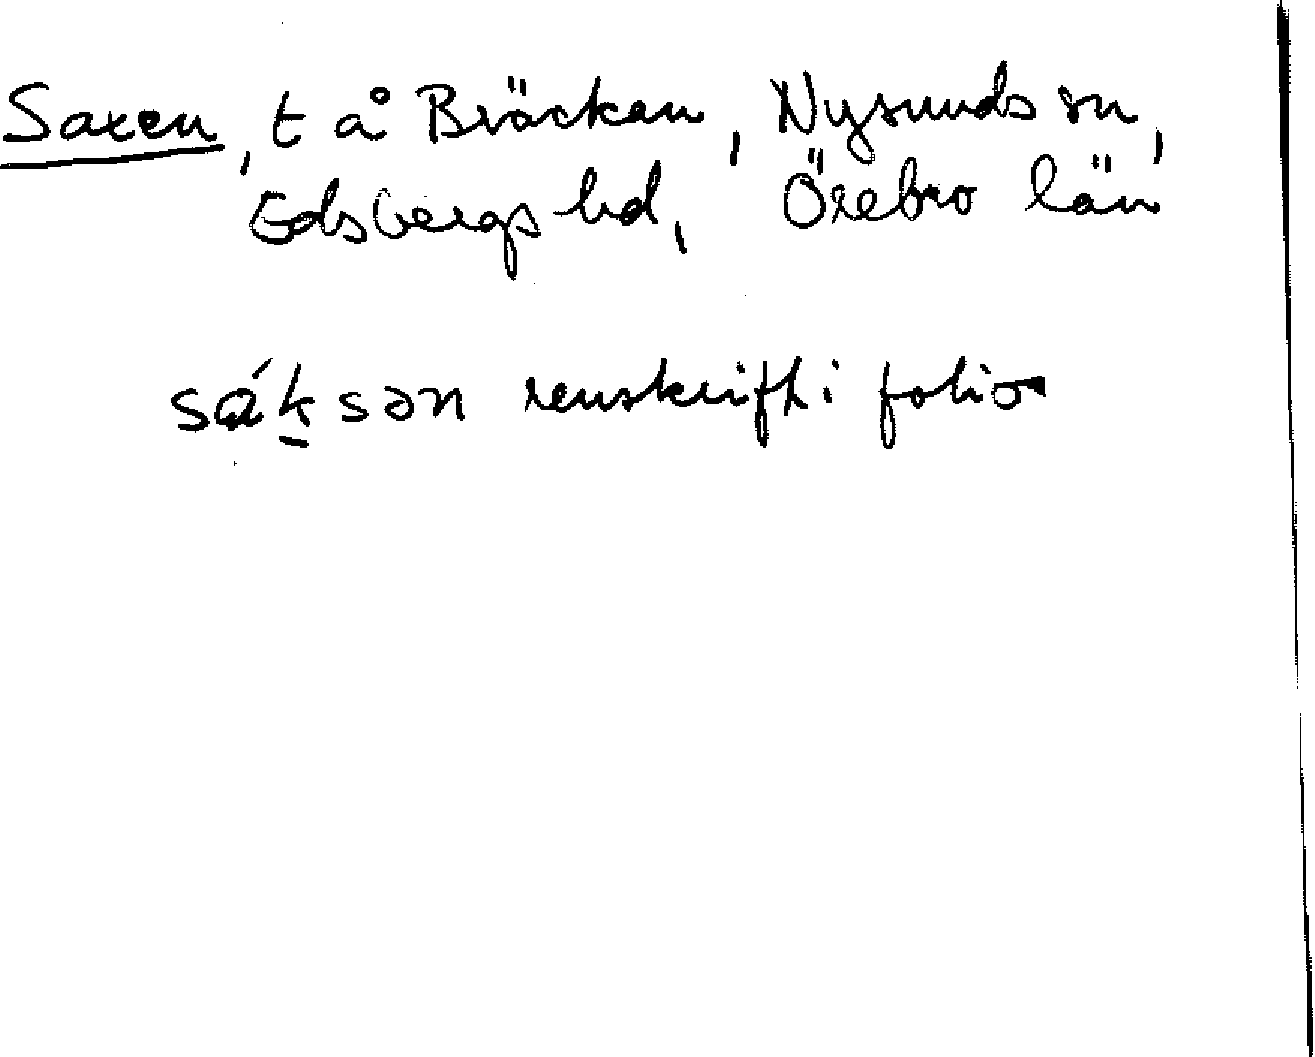 Saxen, t å Bräcken, Nysunds sn,
Edsbergs hd, Örebro län
sák̲sən renskrift i folio